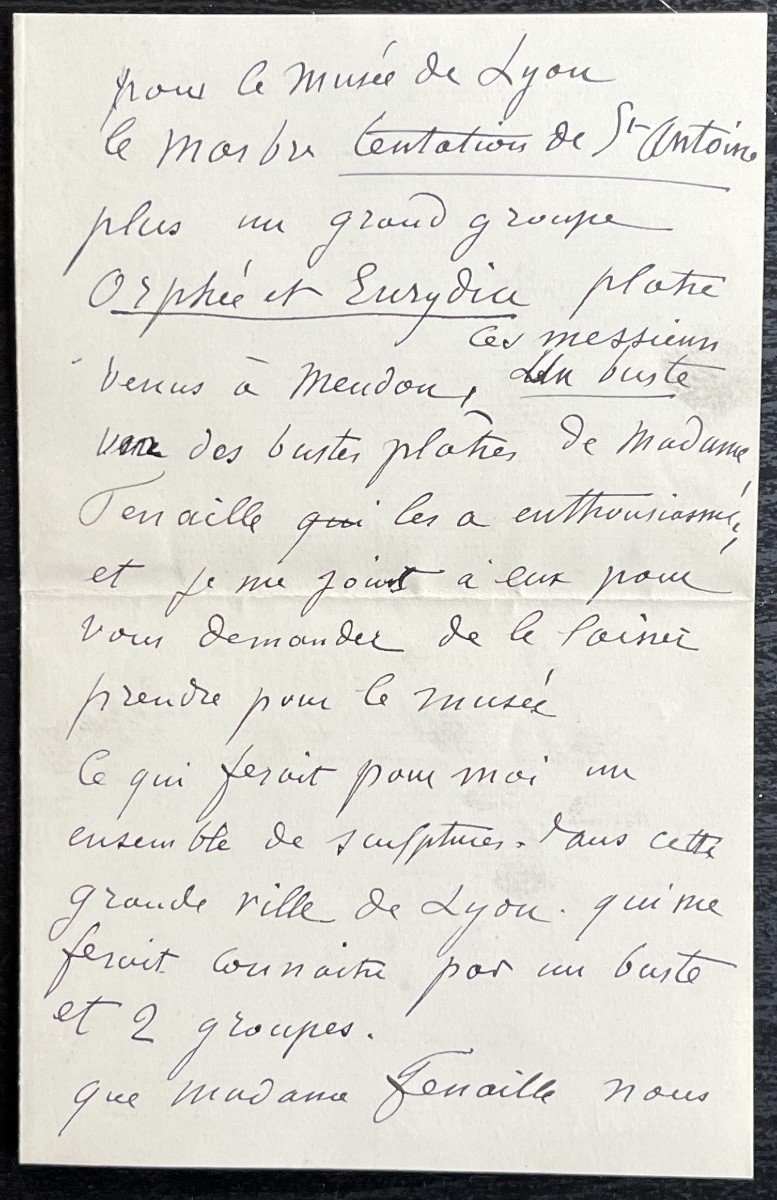 pour le Musée de Lyon
le Marbre tentation de St Antoine
plus un grand groupe
Orphée et Eurydice platre
ces messieurs
venus à Meudon, Un buste
un des bustes platres de Madame
Fenaille qui les a enthousiasmés,
et je me joint à eux pour
vous demander de le laisser
prendre pour le musée
Ce qui feroit pour moi un
ensemble de sculptures. dans cette
grande ville de Lyon. qui me
feroit connaitre par un buste
et 2 groupes.
que madame Fenaille nous